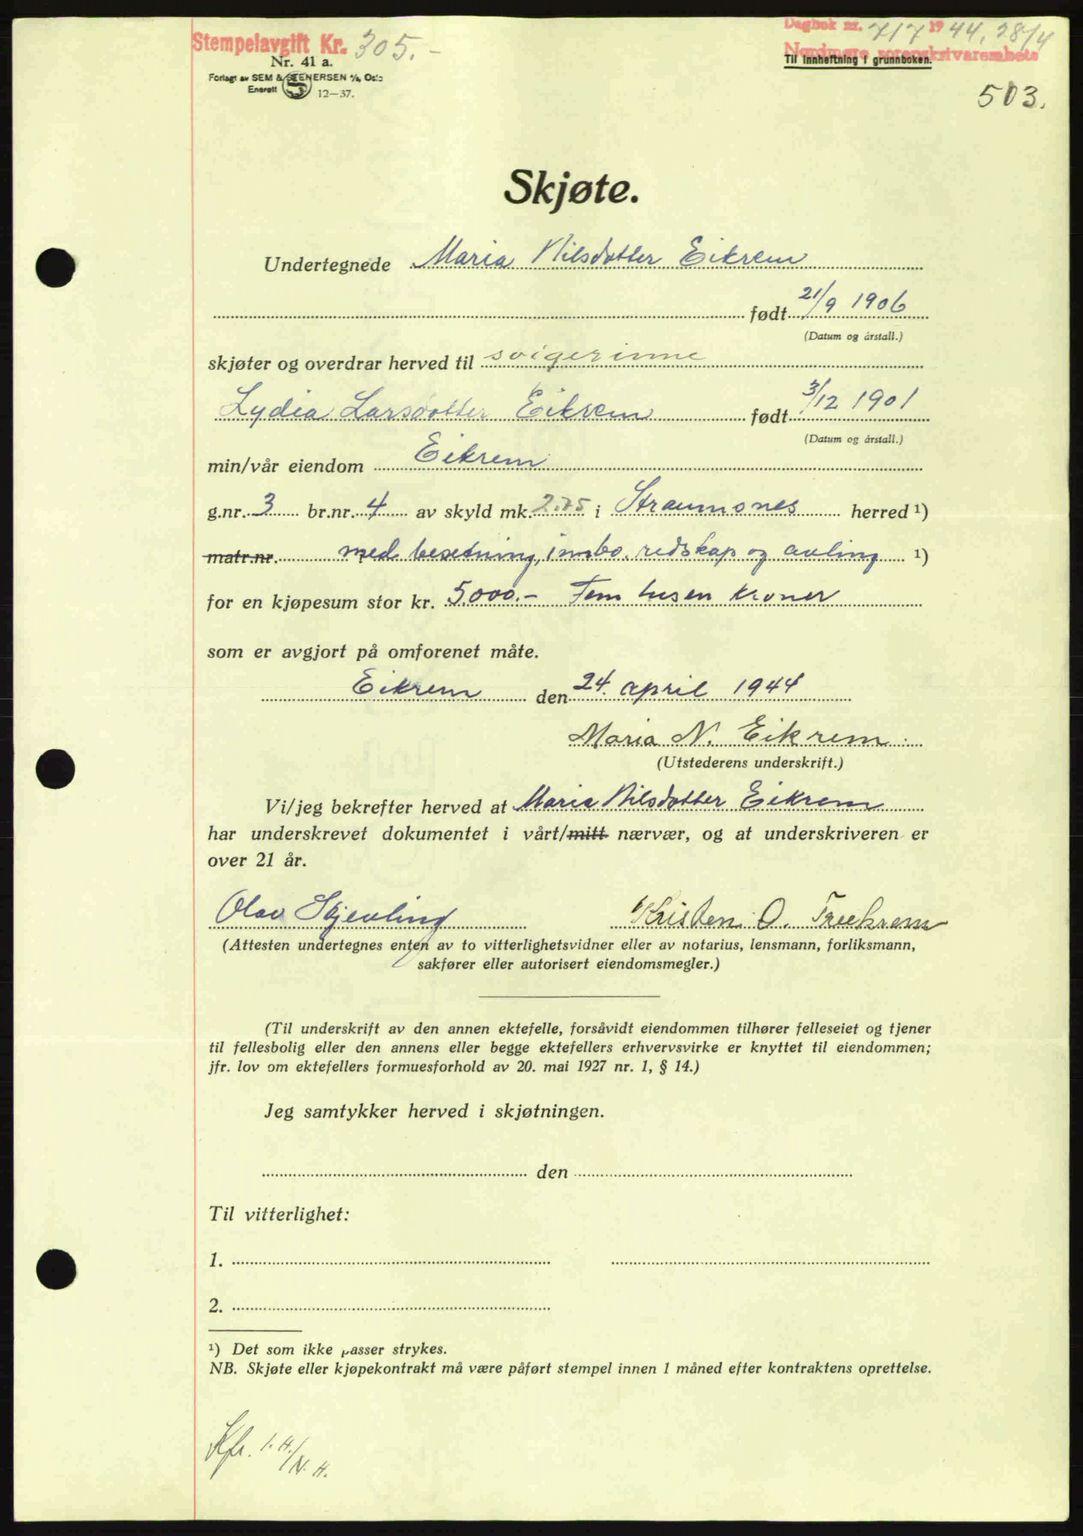 Stempelavgift Kr. 305.-
Nr. 41 a.
Forlagt av SEM & STENERSEN A/S, Oslo
Enerett S 12—37.
Dagbok nr. 717 1944, 28/4
Nordmøre sorenskriverembete
Til innheftning i grunnboken.
503.
Skjøte.
Undertegnede Maria Nilsdotter Eikrem
født 21/9 1906
(Datum og årstall.)
skjøter og overdrar herved til svigerinne
Lydia Larsdotter Eikrem født 3/12 1901
(Datum og årstall.)
min/vår eiendom Eikrem
g.nr. 3 br.nr. 4 av skyld mk. 2.75 i Straumsnes herred ¹)
matr.nr. med besetning, innbo, redskap og avling ¹)
for en kjøpesum stor kr. 5000.- Fem tusen kroner
som er avgjort på omforenet måte.
Eikrem den 24. april 1944
Maria N. Eikrem.
(Utstederens underskrift.)
Vi/jeg bekrefter herved at Maria Nilsdotter Eikrem
har underskrevet dokumentet i vårt/mitt nærvær, og at underskriveren er
over 21 år.
Olav Skjevling Kristen O. Treekrem
(Attesten undertegnes enten av to vitterlighetsvidner eller av notarius, lensmann, forliksmann,
sakfører eller autorisert eiendomsmegler.)
(Til underskrift av den annen ektefelle, forsåvidt eiendommen tilhører felleseiet og tjener
til fellesbolig eller den annens eller begge ektefellers erhvervsvirke er knyttet til eiendommen;
jfr. lov om ektefellers formuesforhold av 20. mai 1927 nr. 1, § 14.)
Jeg samtykker herved i skjøtningen.
den
Til vitterlighet:
1.
2.
¹) Det som ikke passer strykes.
NB. Skjøte eller kjøpekontrakt må være påført stempel innen 1 måned efter kontraktens oprettelse.
Kfr. I.H./N.H.